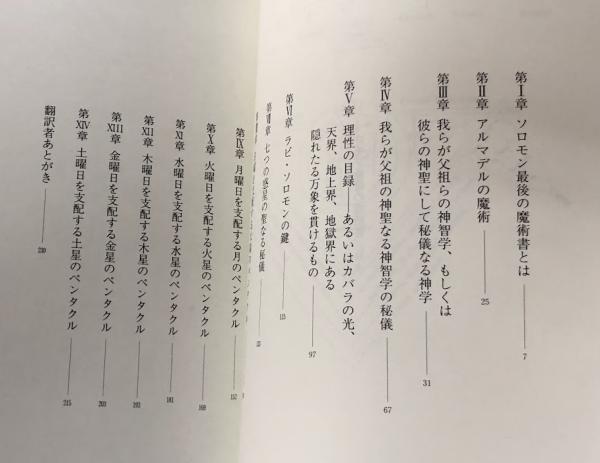 第Ⅰ章 ソロモン最後の魔術書とは 7
第Ⅱ章 アルマデルの魔術 25
第Ⅲ章 我らが父祖らの神智学、もしくは
彼らの神聖にして秘儀なる神学 31
第Ⅳ章 我らが父祖の神聖なる神智学の秘儀 67
第Ⅴ章 理性の目録——あるいはカバラの光、
天界、地上界、地獄界にある
隠れたる万象を貫けるもの 97
第Ⅵ章 ラビ・ソロモンの鍵 115
第Ⅶ章 七つの惑星の聖なる秘儀
第Ⅸ章 月曜日を支配する月のペンタクル 152
第Ⅹ章 火曜日を支配する火星のペンタクル 169
第Ⅺ章 水曜日を支配する水星のペンタクル 181
第Ⅻ章 木曜日を支配する木星のペンタクル 192
第XIII章 金曜日を支配する金星のペンタクル 203
第XIV章 土曜日を支配する土星のペンタクル 215
翻訳者あとがき 230